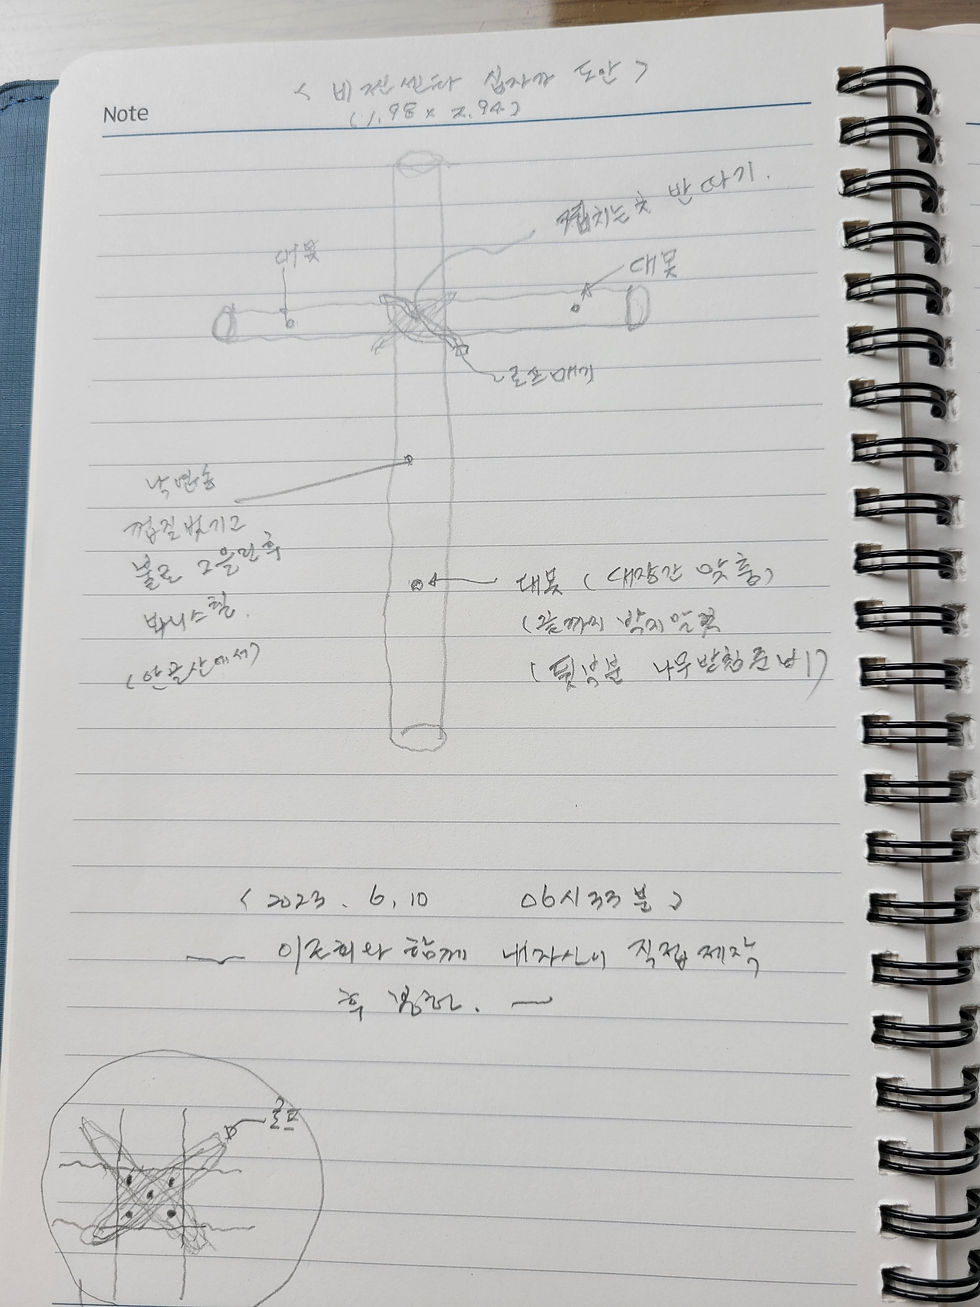 < 비전센타 십자가 도안 >
Note
(1.98 x 2.94)
겹치는 곳 반 따기.
대못
대못
로프매기
낙엽송
껍질벗기고
불로 그을린 후
봐니스칠.
(안골산에서)
대못 (대장간 맞춤)
(끝까지 박지말것
(뒷부분 나무받침 준비!)
< 2023. 6. 10 06시 33분 >
이조희와 함께 내자신이 직접 제작
후 봉헌.
로프